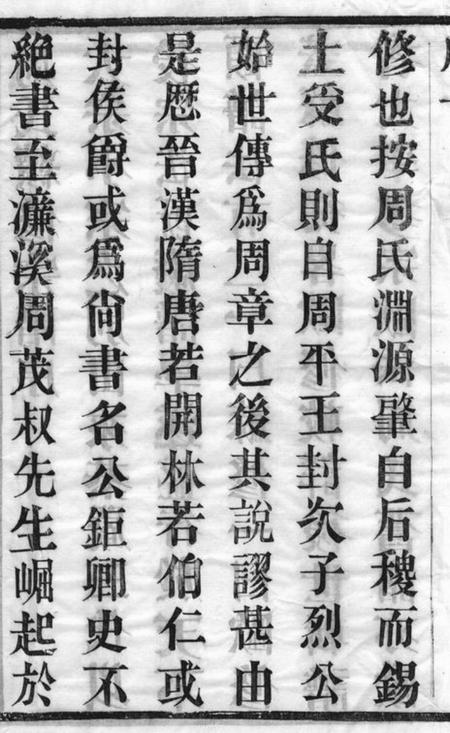 修也按周氏淵源肇自后稷而錫
土受氏則自周平王封次子烈公
始世傳爲周章之後其說謬甚由
是歴晉漢隋唐若開林若伯仁或
封侯爵或爲尙書名公鉅卿史不
絶書至濂溪周茂叔先生崛起於